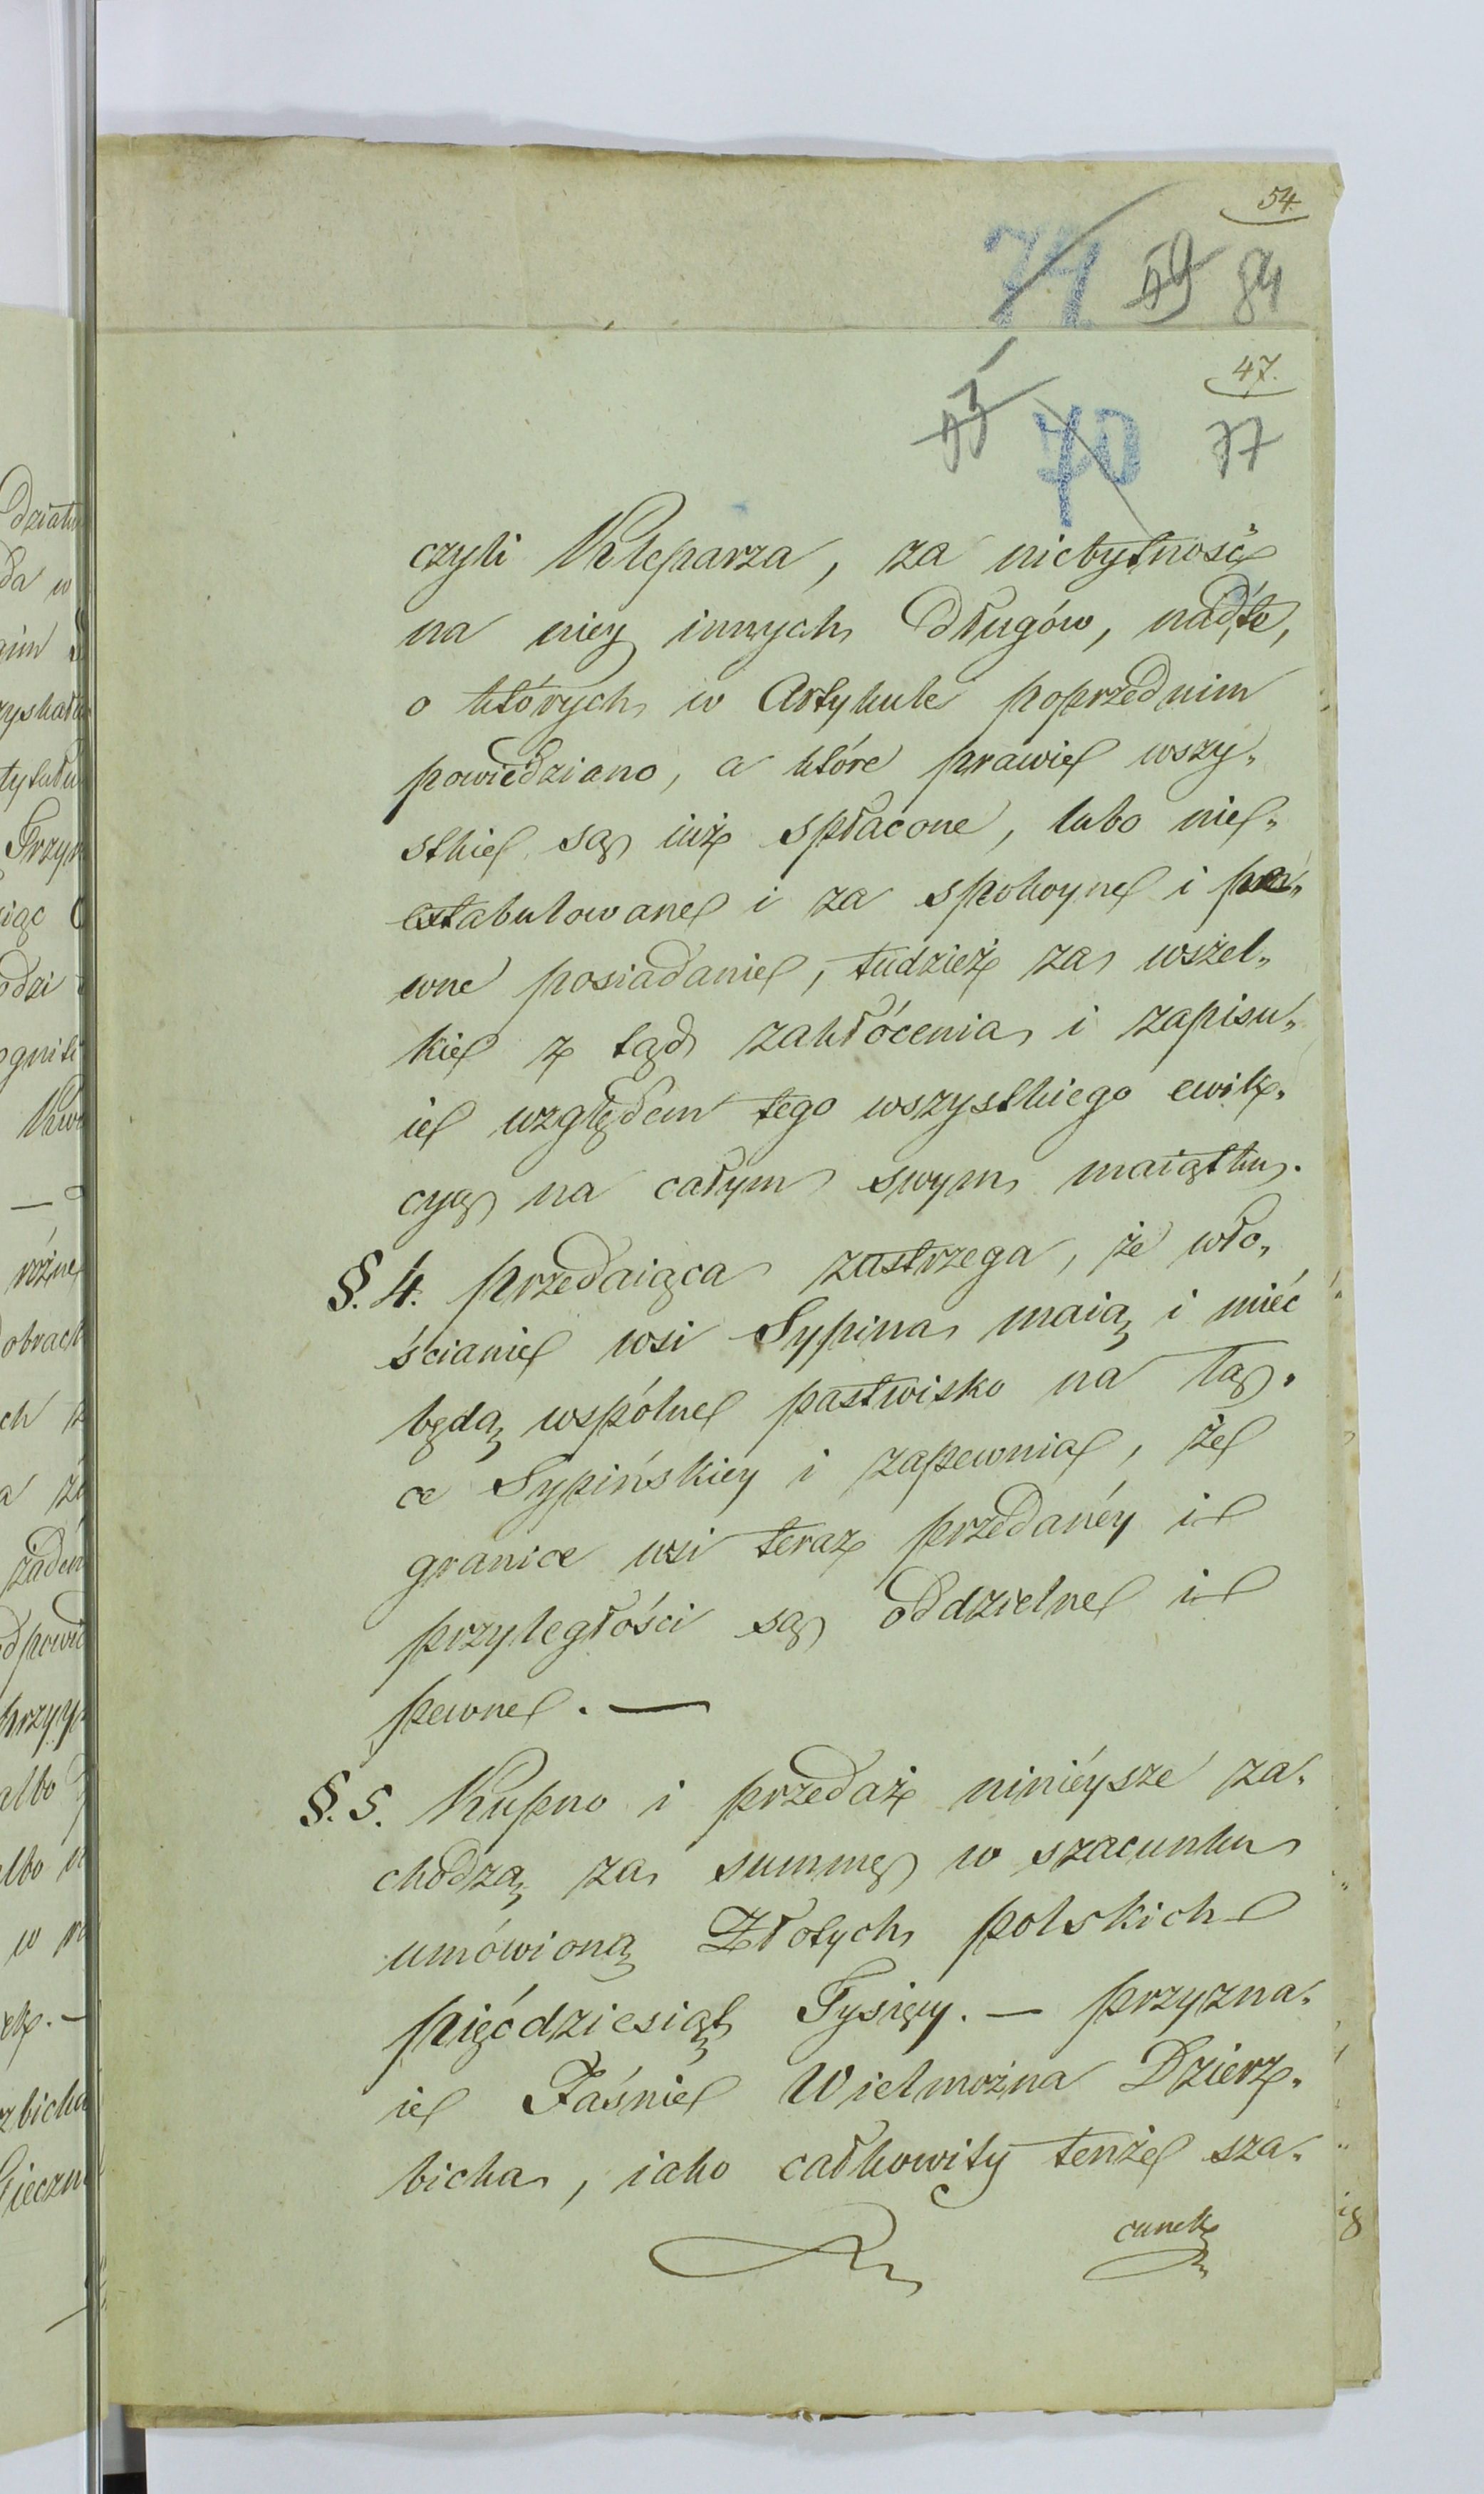 54.
74 59 84
47.
53 70 77
czyli Kleparza, za niebytność
na niey innych Długów, nad te,
o których w Artykule poprzednim
powiedziano, a które prawie wszy„
stkie są iuż spłacone, lubo nie„
extabulowane i za spokoyne i pe„
wne posiadanie, tudzież za wszel„
kie z tąd zakłócenia i zapisu„
ie względem tego wszystkiego ewik„
cyą na całym swym maiątku.
§. 4. przedaiąca zastrzega, że wło„
ścianie wsi Sypina maią i mieć
będą wspólne pastwisko na łą„
ce Sypińskiey i zapewnia, że
granice wsi teraz przedanéy i
przyległości są oddzielne i
pewne. —
§. 5. Kupno i przedaż ninieysze za„
chodzą za summę w szacunku
umówioną Złotych polskich
pięćdziesiąt Tysięcy. — przyzna„
ie Jaśnie Wielmożna Dzierz„
bicka, iako całkowity tenże sza„
cunek